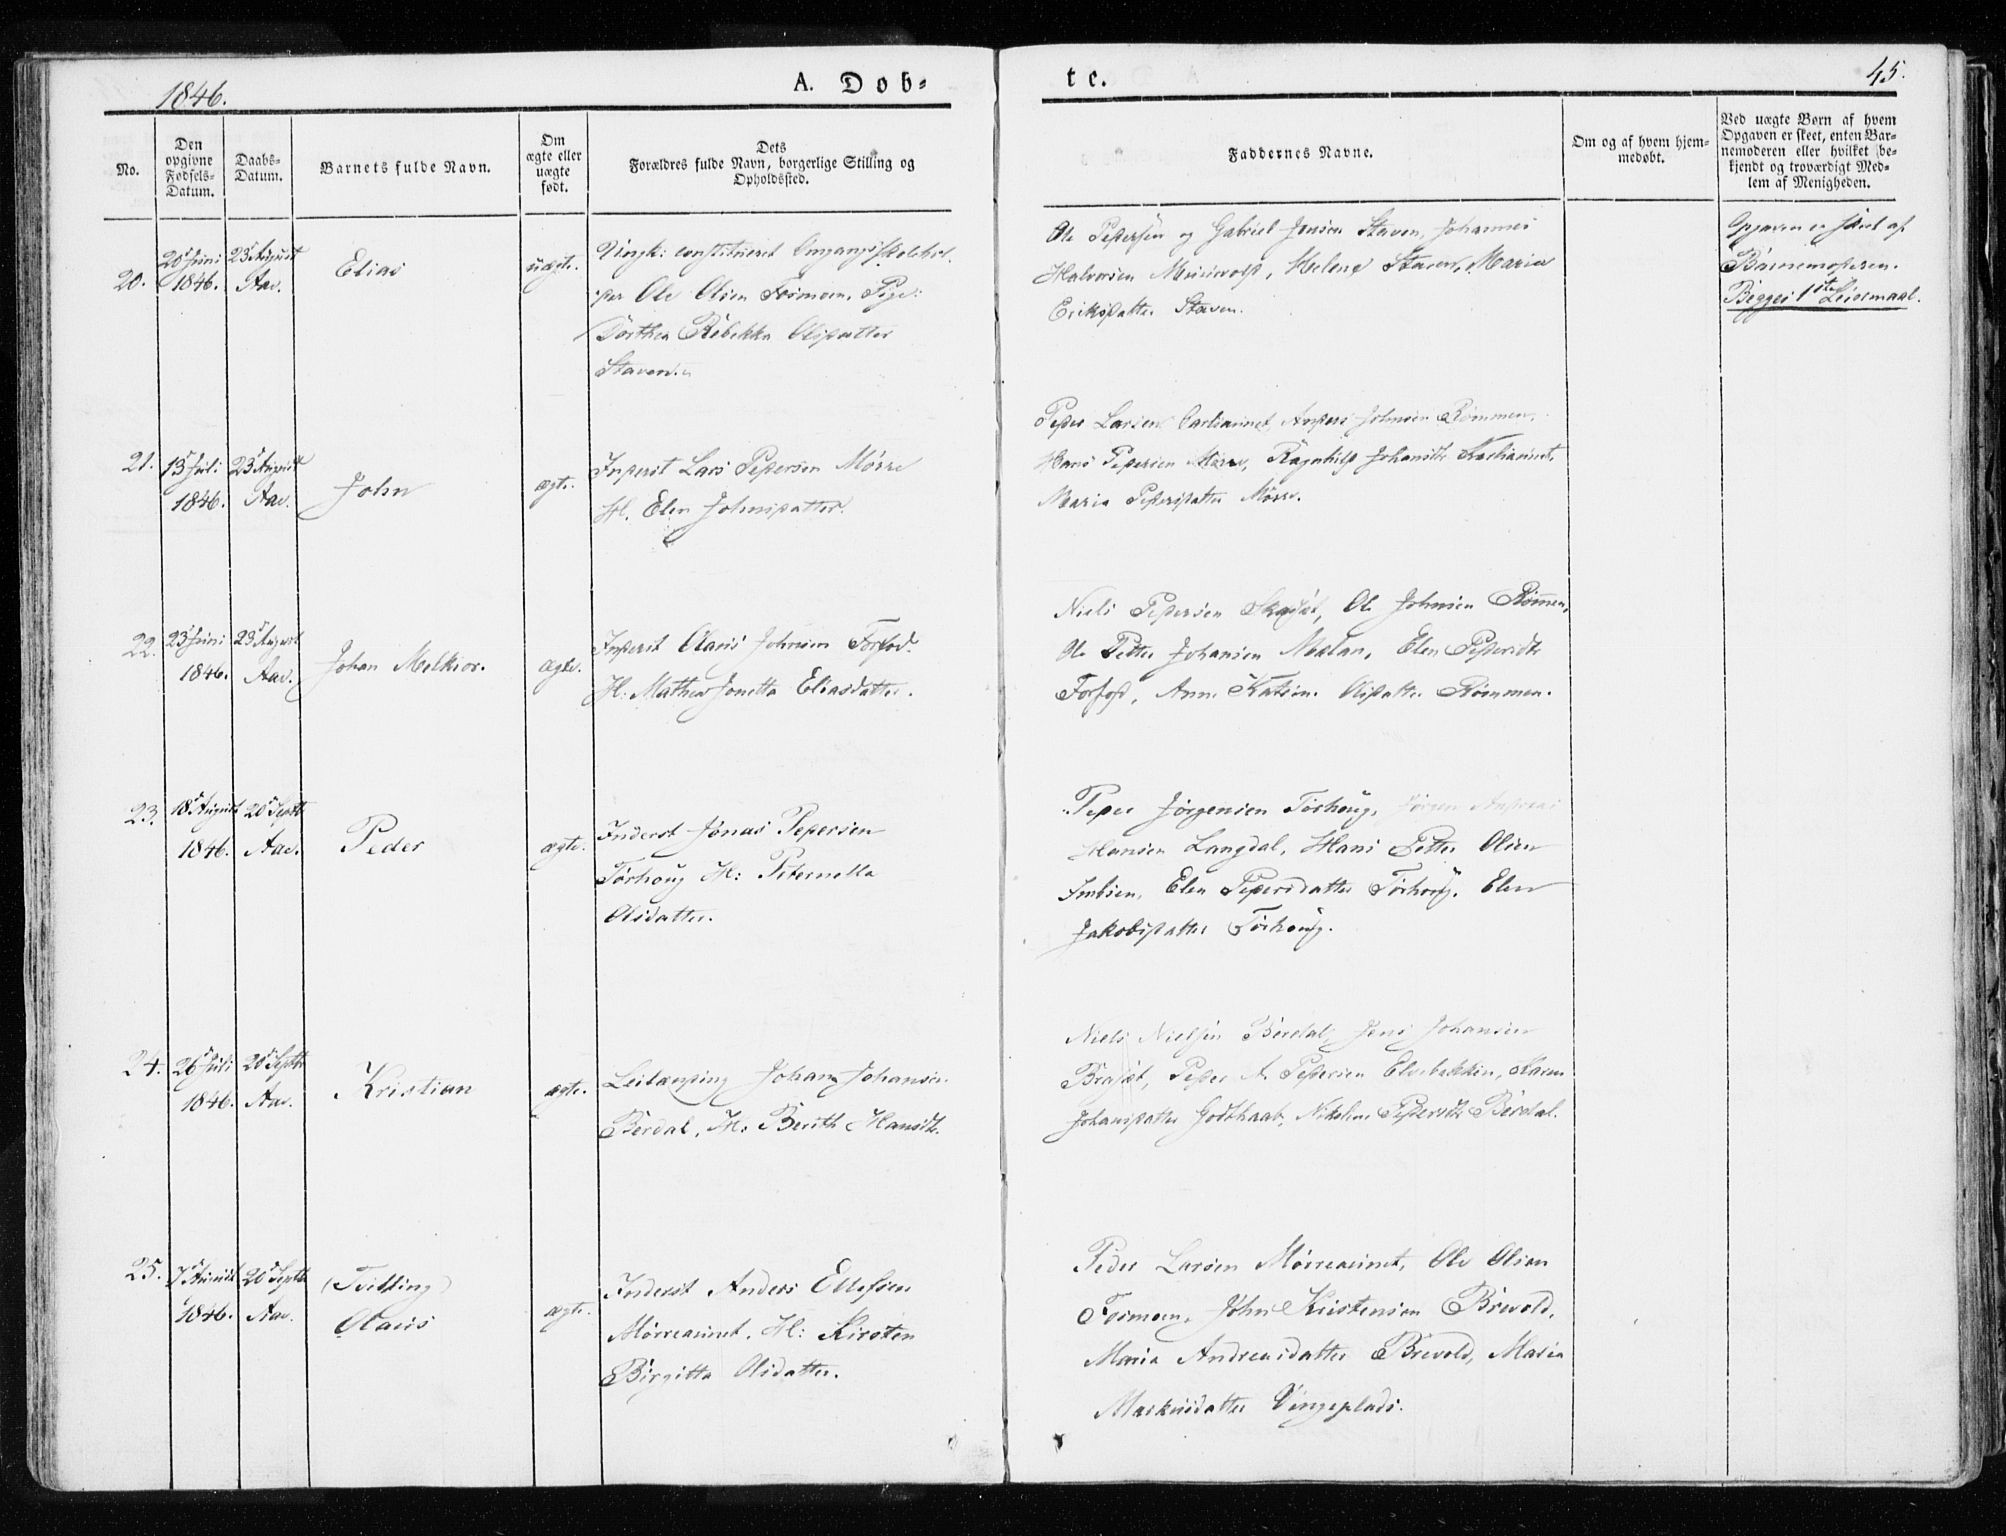 1846.
A. Døb=
te.
45.
No.
Den opgivne Fødsels-Datum.
Daabs-Datum.
Barnets fulde Navn.
Om ægte eller uægte født.
Dets
Forældres fulde Navn, borgerlige Stilling og
Opholdssted.
Faddernes Navne.
Om og af hvem hjem-
medøbt.
Ved uægte Børn af hvem
Opgaven er skeet, enten Bar-
nemoderen eller hvilket be-
kjendt og troværdigt Med-
lem af Menigheden.
20.
20 Juni 1846.
23 August Aae.
Elias
uægte.
Ungk: constitueret Omgangsskolehol-
der Ole Olsen Formoen, Pige:
Dorthea Rebekka Olsdatter
Staven.
Ole Pedersen og Gabriel Jensen Staven, Johannes
Halvorsen, Helene Staven, Maria
Eriksdatter Staven.
Opgaven er skeet af
Barnemoderen.
Begges 1ste Leiermaal.
21.
13 Juli 1846.
23 August Aae.
John
ægte.
Inderst Lars Pedersen Mørre
H. Elen Johnsdatter.
Peder Larsen, Anders Johnsen Rømmen,
Hans Pedersen Mørre, Ragnhild Johansdtr
Maria Pedersdatter Mørre.
22.
23 Juni 1846.
23 August Aae.
Johan Melkior.
ægte.
Inderst Olaus Johnsen Forfod.
H: Mathea Jonetta Eliasdatter.
Niels Pedersen, Ole Johnsen Rømmen,
Ole Petter Johansen Mælan, Elen Pedersdtr
Forfod, Anne Katrine Olsdatter Rømmen.
23.
18 August 1846.
20 Septb Aae.
Peder
ægte.
Inderst Jonas Pedersen
Torhoug H: Peternella
Olsdatter.
Peder Jørgensen Torhoug, Jørgen Andreas
Hansen Langdal, Hans Petter Olsen
Elen Pedersdatter Torhoug, Elen
Jakobsdatter Torhoug.
24.
26 Juli 1846.
20 Septb Aae.
Kristian
ægte.
Leilænding Johan Johansen
Berdal, H: Berith Hansdtr.
Niels Nielsen Berdal, Jens Johansen
Peder A. Pedersen Elvebakken, Karen
Johansdatter Godthaab, Nikoline Pedersdtr Berdal.
25.
7 August 1846.
20 Septb Aae.
(Tvilling)
Olaus
ægte.
Inderst Anders Ellefsen
Mørreaunet, H: Kirsten
Birgitta Olsdatter.
Peder Larsen Mørreaunet, Ole Olsen
Formoen, John Kristensen Brevold,
Maria Andreasdatter Brevold, Maria
Markusdatter Vingeplads.